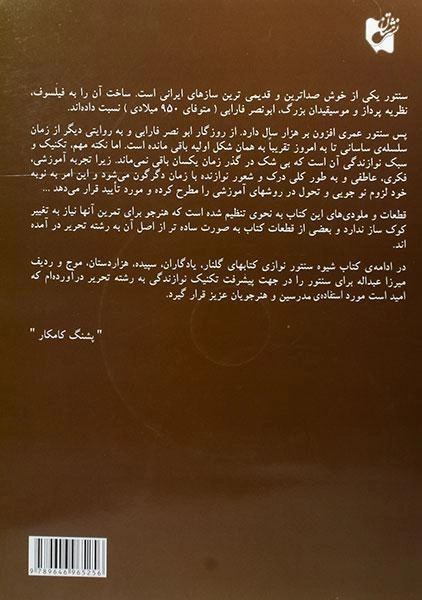 نشر هستان
سنتور یکی از خوش صداترین و قدیمی ترین سازهای ایرانی است. ساخت آن را به فیلسوف،
نظریه پرداز و موسیقیدان بزرگ، ابونصر فارابی ( متوفای ۹۵۰ میلادی ) نسبت داده‌اند.
پس سنتور عمری افزون بر هزار سال دارد. از روزگار ابو نصر فارابی و به روایتی دیگر از زمان
سلسله‌ی ساسانی تا به امروز تقریباً به همان شکل اولیه باقی مانده است. اما نکته مهم، تکنیک و
سبک نوازندگی آن است که بی شک در گذر زمان یکسان باقی نمی‌ماند. زیرا تجربه آموزشی،
فکری، عاطفی و به طور کلی درک و شعور نوازنده با زمان دگرگون می‌شود و این امر به نوبه
خود لزوم نو جویی و تحول در روشهای آموزشی را مطرح کرده و مورد تأیید قرار می‌دهد ...
قطعات و ملودی‌های این کتاب به نحوی تنظیم شده است که هنرجو برای تمرین آنها نیاز به تغییر
کوک ساز ندارد و بعضی از قطعات کتاب به صورت ساده تر از اصل آن به رشته تحریر در آمده
اند.
در ادامه‌ی کتاب شیوه سنتور نوازی کتابهای گلنار، یادگاران، سپیده، هزاردستان، موج و ردیف
میرزا عبداله برای سنتور را در جهت پیشرفت تکنیک نوازندگی به رشته تحریر درآورده‌ام که
امید است مورد استفاده‌ی مدرسین و هنرجویان عزیز قرار گیرد.
" پشنگ کامکار "
9 789646 965256